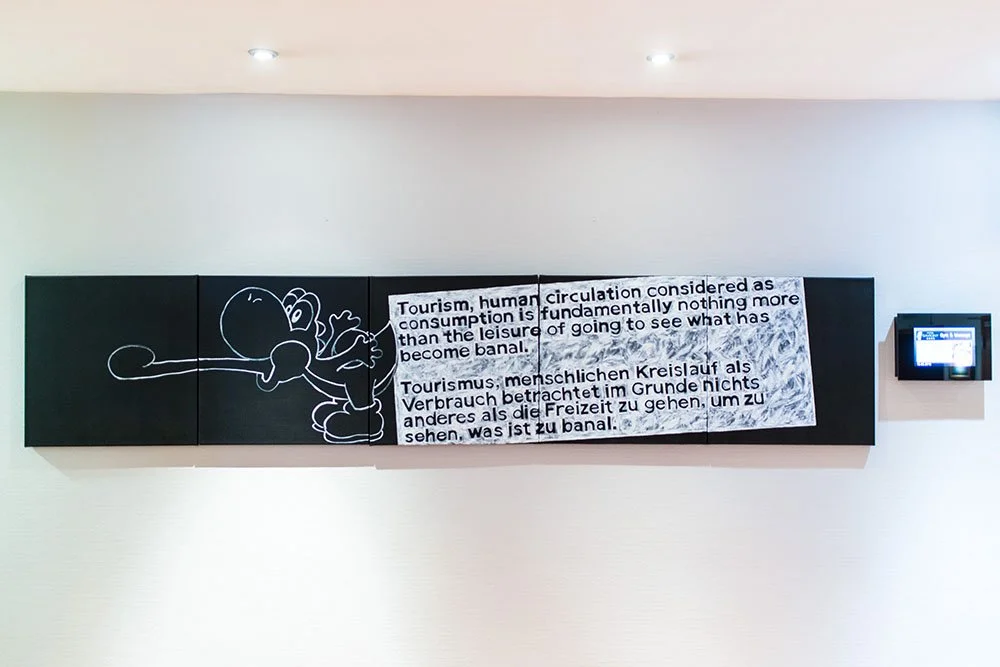 Tourism, human circulation considered as
consumption is fundamentally nothing more
than the leisure of going to see what has
become banal.
Tourismus, menschlichen Kreislauf als
Verbrauch betrachtet im Grunde nichts
anderes als die Freizeit zu gehen, um zu
sehen, was ist zu banal.